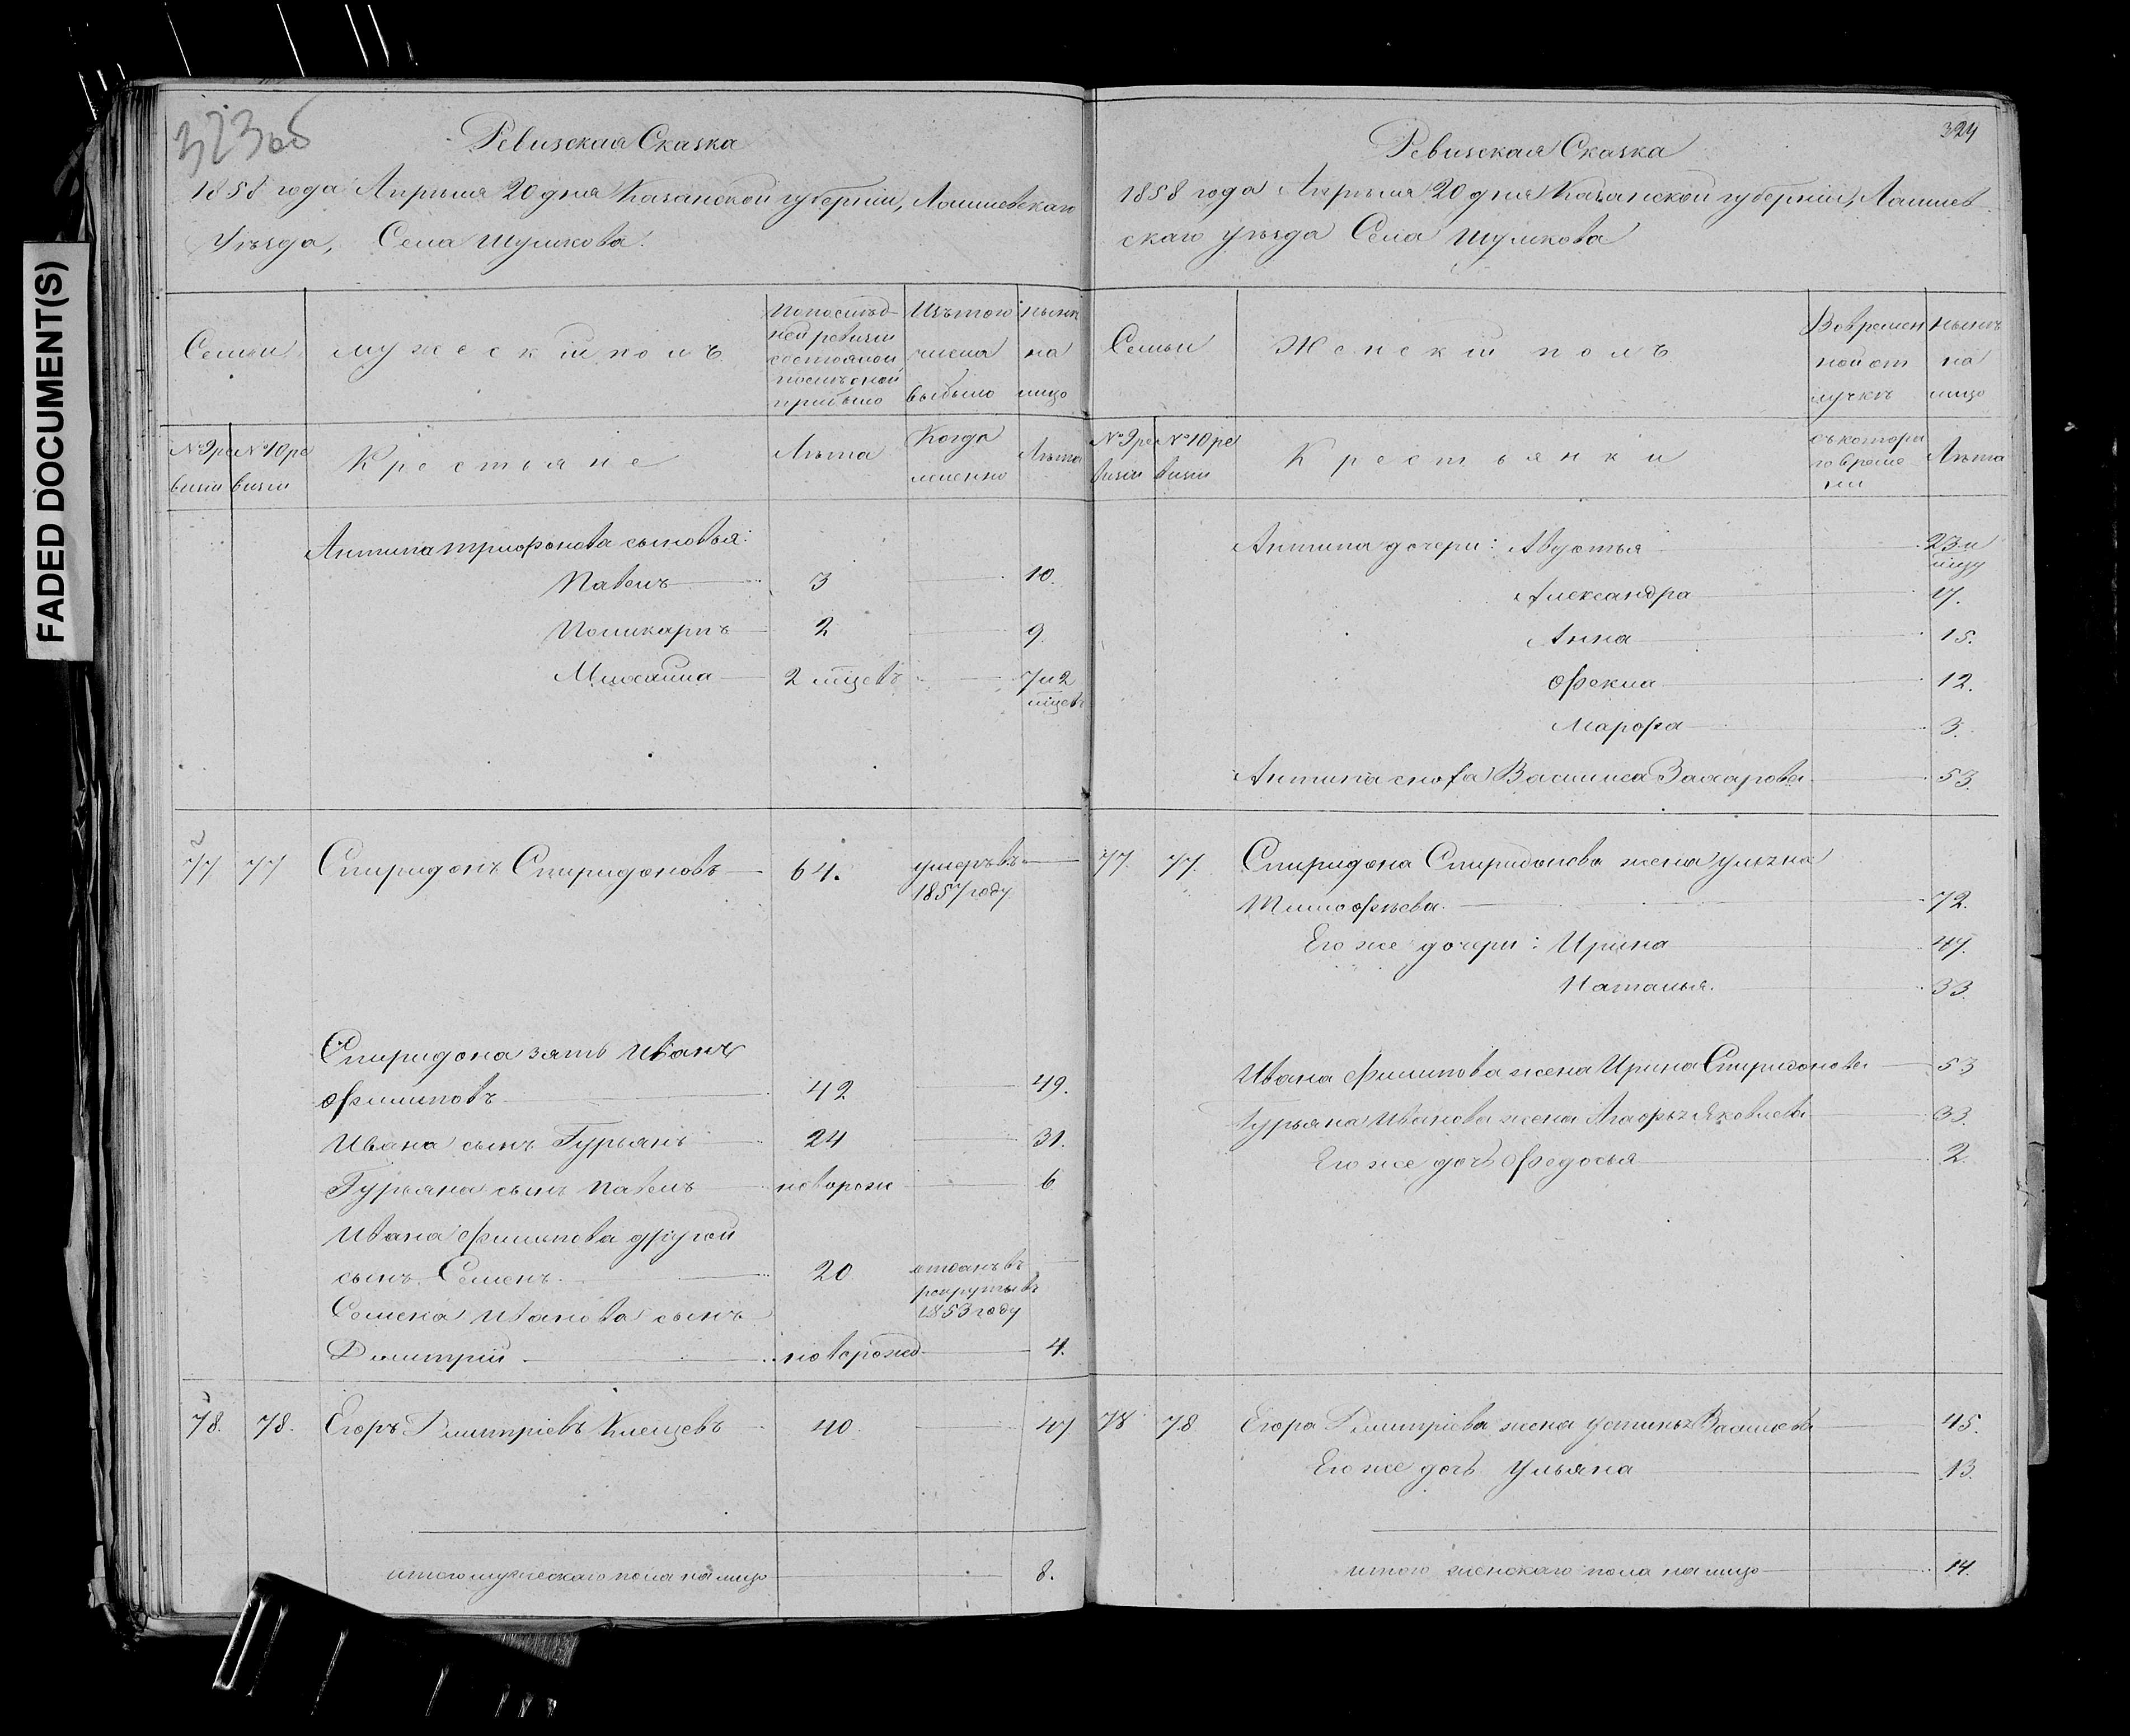 FADED DOCUMENT(S)
323об
Ревизская Сказка
1858 года Апрѣля 20 дня Казанской губерніи, Лаишевскаго
Уѣзда, Села Шумкова.
Семьи
мужескій полъ
По послѣд-
ней ревизіи
состояло и
послѣ оной
прибыло
Изъ того
числа
выбыло
нынѣ
на
лицо
№ 9 ре
визіи
№ 10 ре
визіи
Крестьяне
Лѣта
Когда
именно
Лѣта
Антипа Трифонова сыновья:
Павелъ 3 10.
Поликарпъ 2 9.
2 мѣсцевъ 7 и 2
мѣсцевъ
77 77 Спиридонъ Спиридоновъ 64. умеръ въ
1857 году
Спиридона зять Иванъ
Филиповъ 42 49.
Ивана сынъ Гурьянъ 24 31.
Гурьяна сынъ Павелъ новорож 6
Ивана Филипова другой
сынъ Семенъ. 20 отданъ въ
рекруты въ
1853 году
Семена Иванова сынъ
Димитрій новорожд 4.
78. 78. Егоръ Димитріевъ Клещевъ 40 47
итого мужескаго пола на лицо 8.
324
Ревизская Сказка
1858 года Апрѣля 20 дня Казанской губерніи, Лаишев
скаго уѣзда Села Шумкова
Семьи
Женскій полъ
Во времен
ной от
лучкѣ
нынѣ
на
лицо
№ 9 ре
визіи
№ 10 ре
визіи
Крестьянки
съ котора
го време
ни
Лѣта
Антипа дочери: Авдотья 23 и
Александра 17.
Анна 15.
Фекла 12.
Марфа 3.
Антипа сноха Василиса Захарова 53.
77. 77. Спиридона Спиридонова жена
Тимофѣева. 72.
Его же дочери: Ирина 47.
Наталья. 33.
Ивана Филипова жена Ирина Спиридонова 53
Гурьяна Иванова жена Агафья Яковлева 33.
Его же дочь Федосья 2.
78 78 Егора Димитріева жена Устинья 45.
Его же дочь Ульяна 13.
итого женскаго пола на лицо 14.